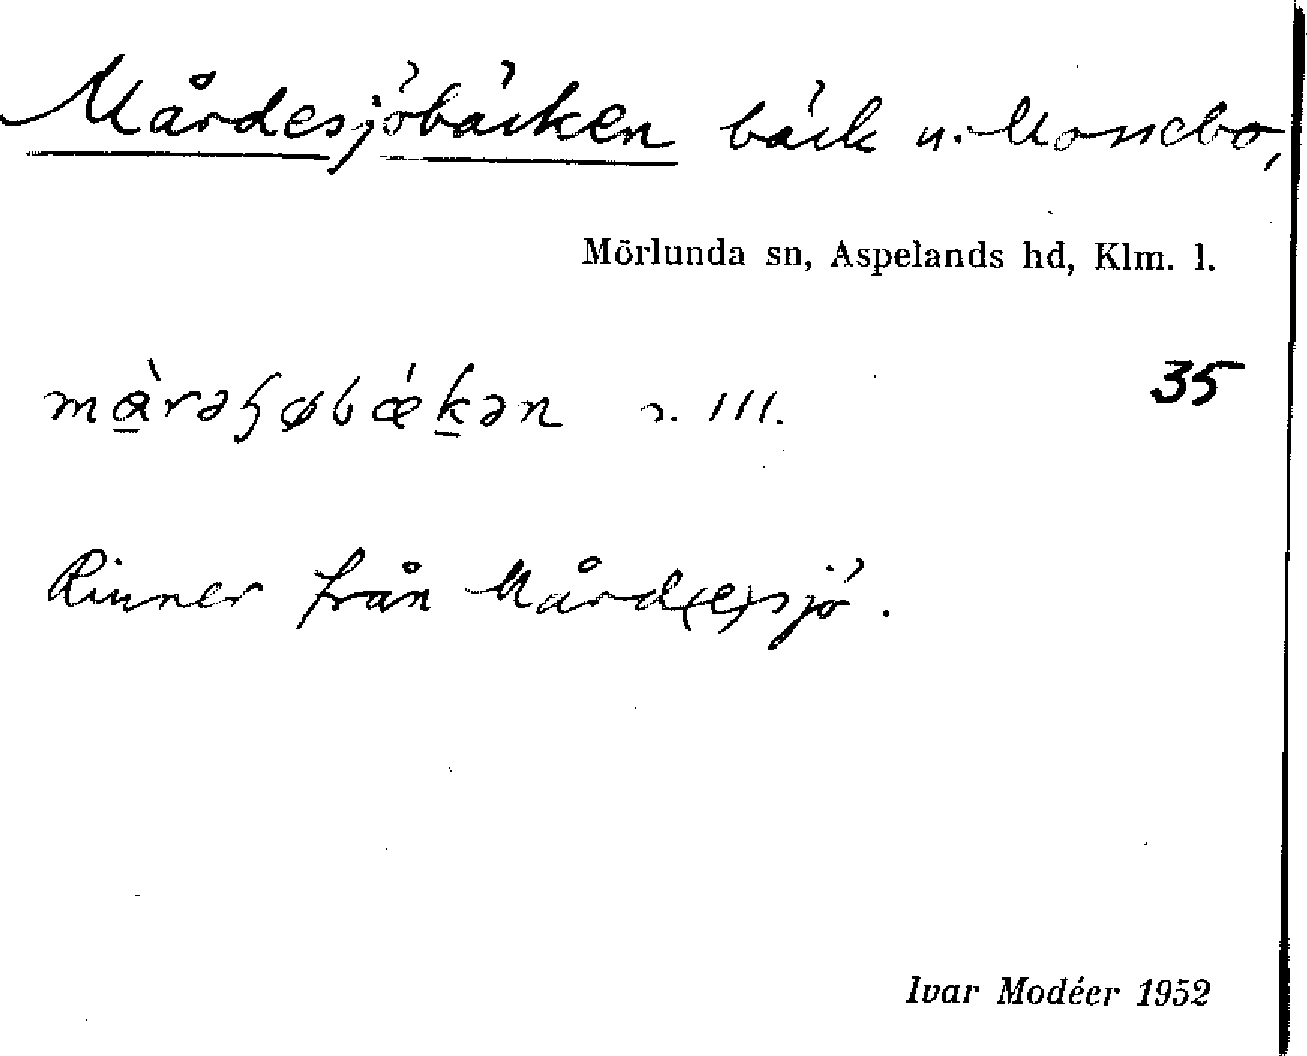 Mårdesjöbäcken bäck u. Mossebo,
Mörlunda sn, Aspelands hd, Klm. l.
35
s. III.
Rinner från Mård(e)sjö.
Ivar Modéer 1952